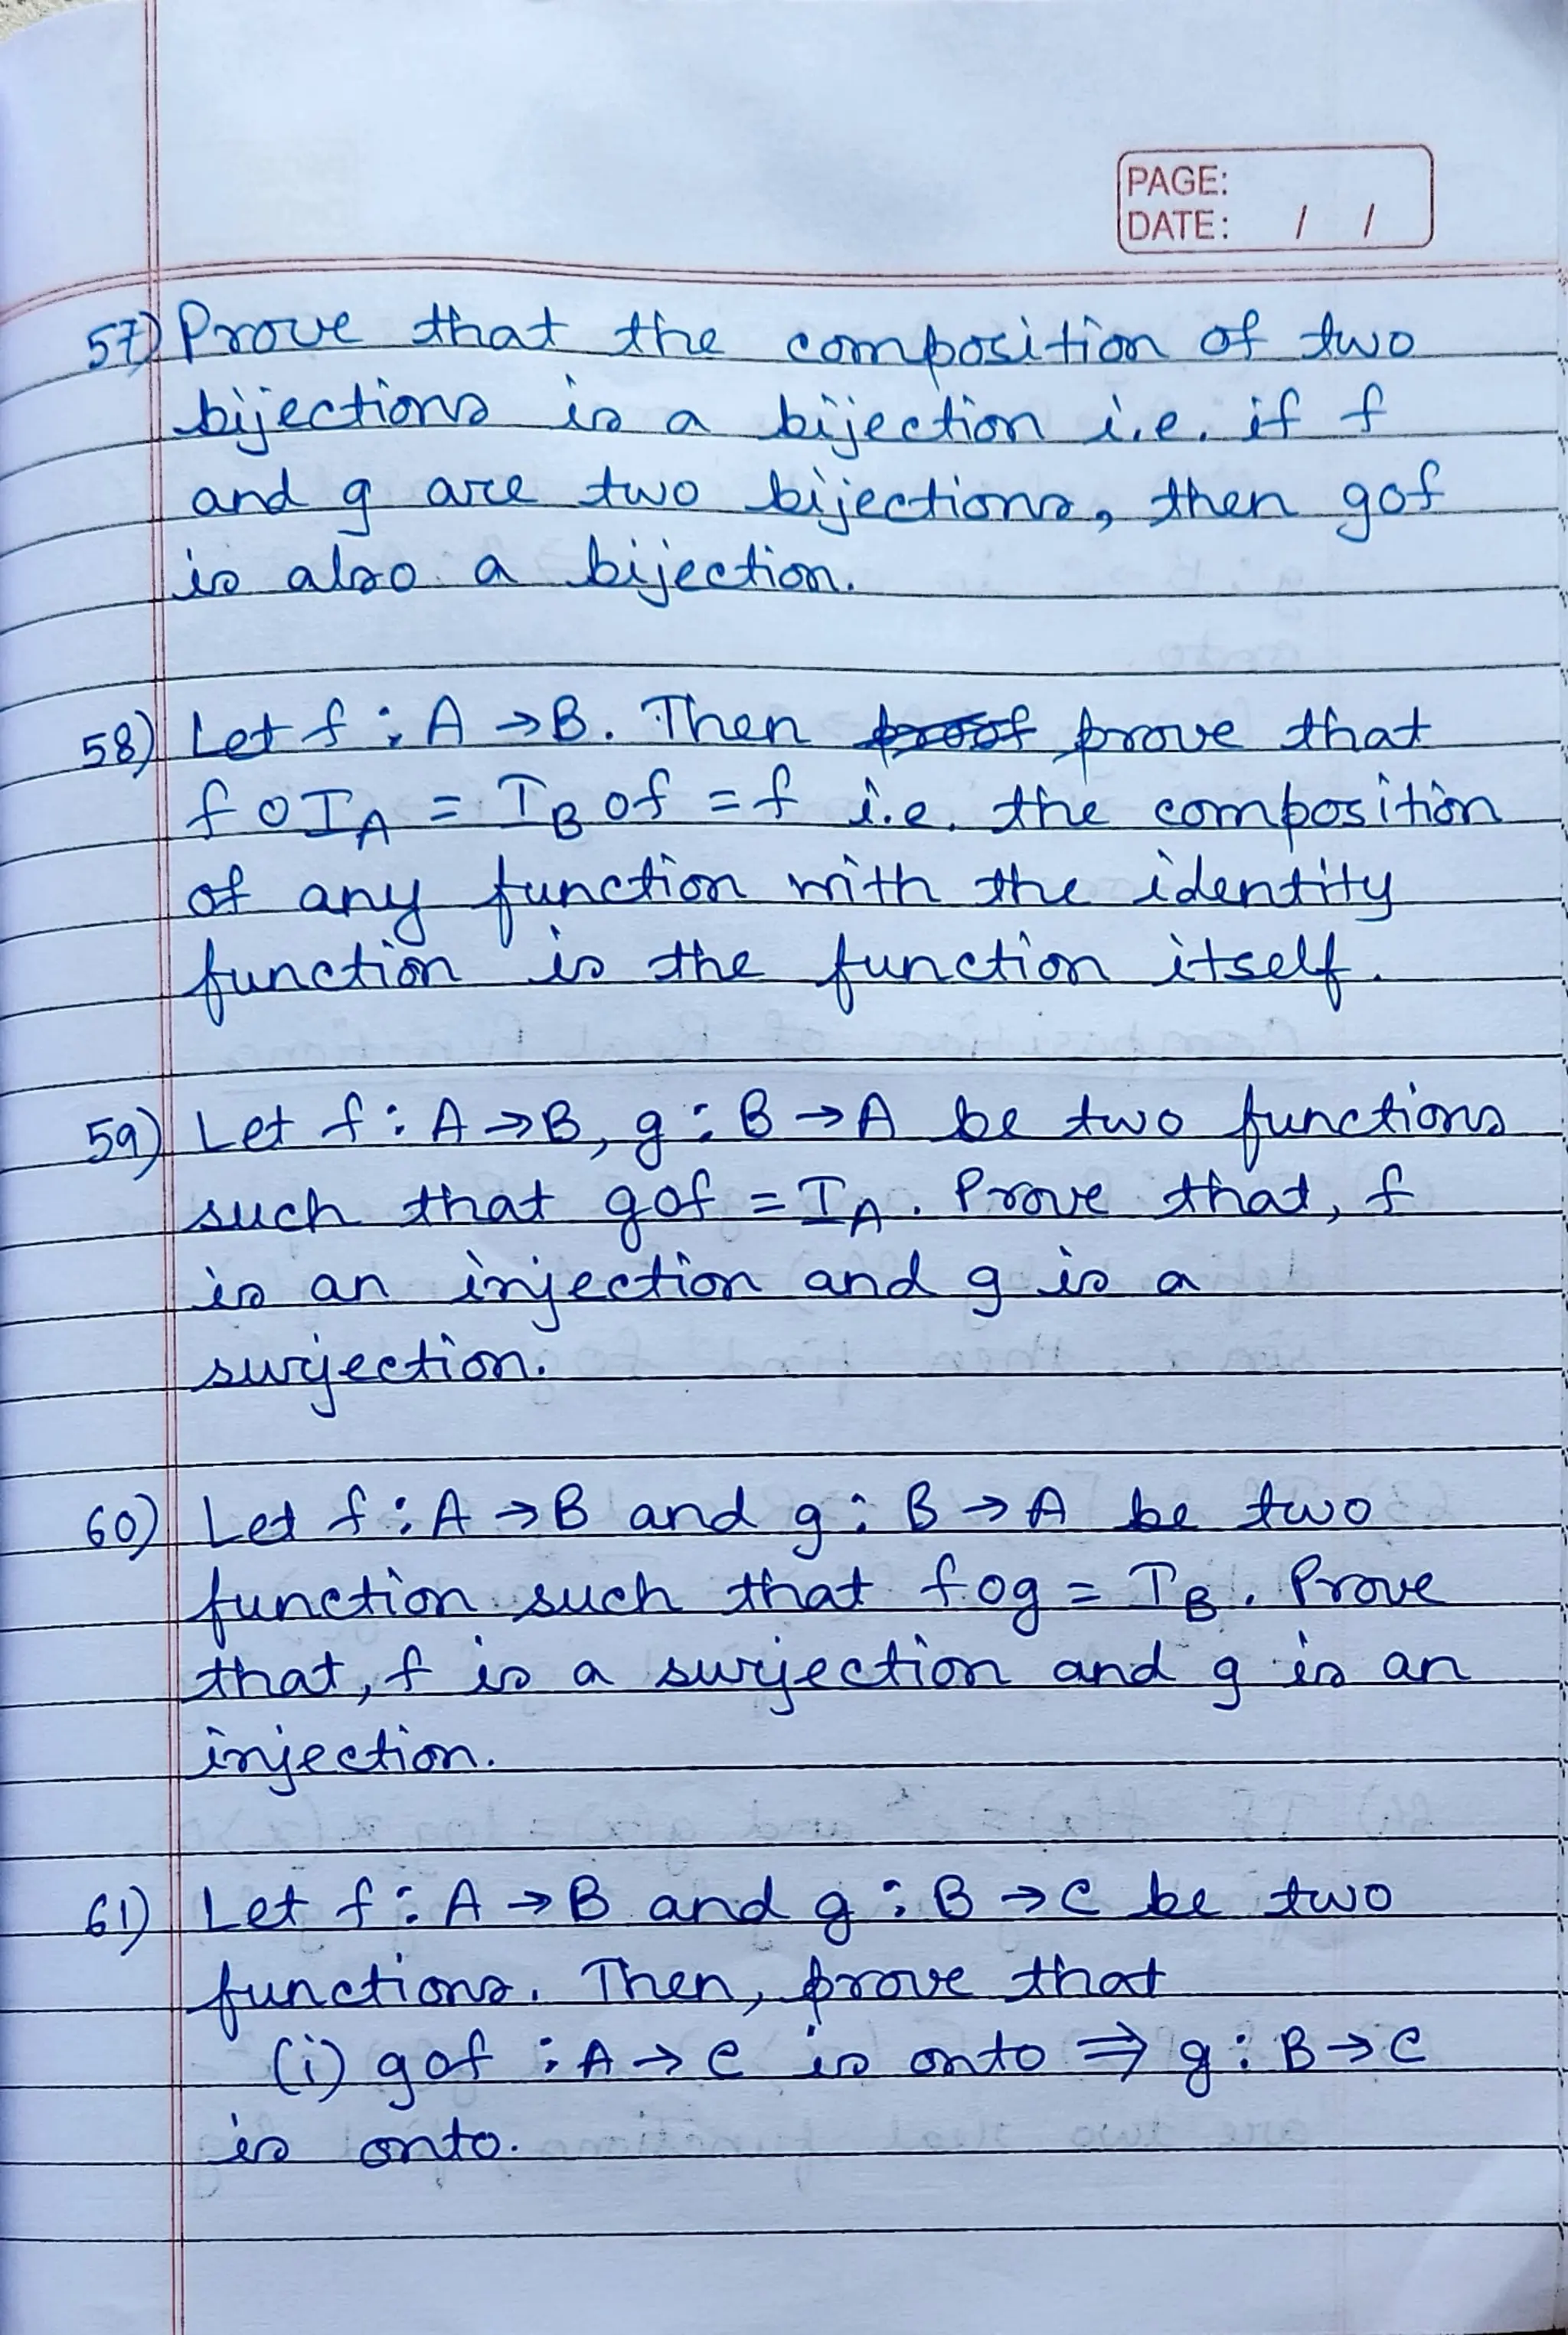 PAGE:
DATE: / /
57) Prove that the composition of two
bijections is a bijection i.e. if f
and g are two bijections, then gof
is also a bijection.
58) Let f : A → B. Then proof prove that
f o I_A = I_B o f = f i.e. the composition
of any function with the identity
function is the function itself.
59) Let f : A → B, g : B → A be two functions
such that gof = I_A. Prove that, f
is an injection and g is a
surjection.
60) Let f : A → B and g : B → A be two
function such that fog = I_B. Prove
that, f is a surjection and g is an
injection.
61) Let f : A → B and g : B → C be two
functions. Then, prove that
(i) gof : A → C is onto ⇒ g : B → C
is onto.